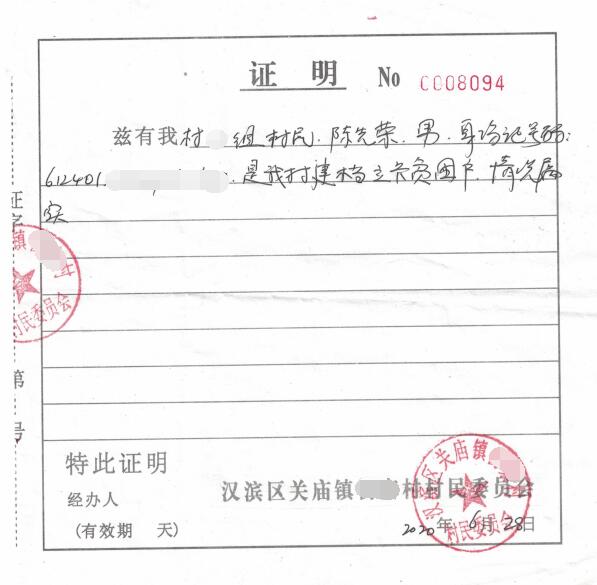 证明 No C008094
兹有我村 组村民.陈先荣.男.身份证号码:
612401 .是我村建档立卡贫困户.情况属
实
证字
第
号
镇
村民委员会
特此证明
经办人
(有效期 天)
汉滨区关庙镇 村村民委员会
2020年6月28日
汉滨区关庙镇
村民委员会